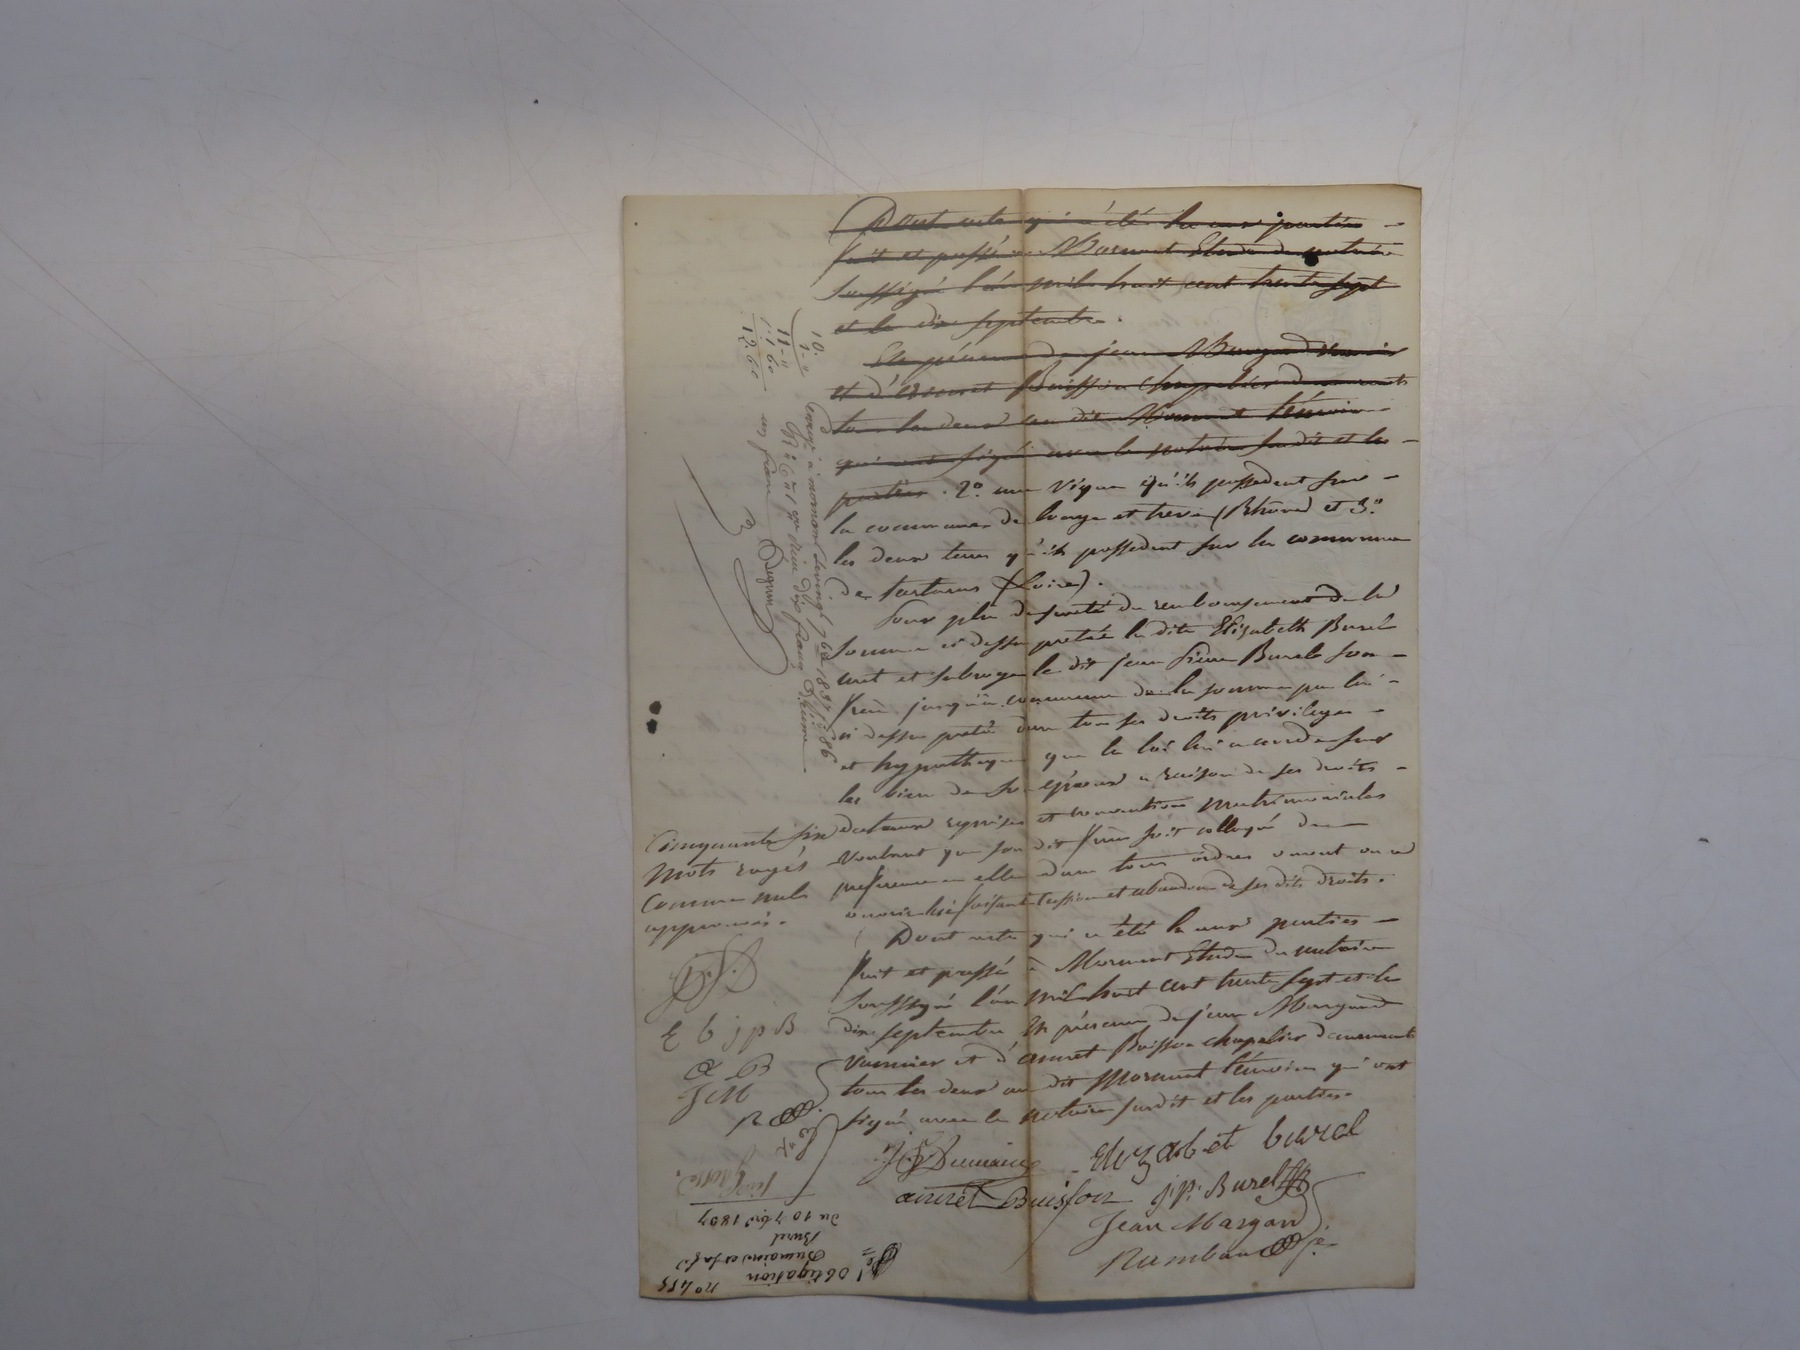 Dont acte qui a été lu aux parties
fait et passé à Mornant Etude du notaire
soussigné l'an mil huit cent trente sept
et le dix septembre.
En présence de jean Margand vannier
et d'annet Buisson chapelier demeurants
tous les deux au dit Mornant témoins
qui ont signé avec le notaire susdit et les
parties. 2º une vigne qu'ils possedent sur
la commune de longe et treve (Rhône) et 3º
les deux terres qu'ils possedent sur la commune
de tartaras (Loire).
Pour plus de sureté du remboursement de la
somme ci dessus pretée la dite Elizabeth Burel
met et subroge le dit jean Pierre Burel son
frère jusqu'a concurrence de la somme par lui
ci dessus pretée dans tous ses droits privileges
et hypotheques que la loi lui accorde sur
les biens de son epoux a raison de ses droits
dotaux reprises et conventions matrimoniales
voulant que son dit frère soit colloqué de
preference a elle dans tous ordres ouverts ou a
ouvrir lui faisant cession et abandon de ses dits droits.
Dont acte qui a été lu aux parties
fait et passé à Mornant Etude du notaire
soussigné l'an mil huit cent trente sept et le
dix septembre En présence de jean Margand
vannier et d'annet Buisson chapelier demeurants
tous les deux au dit Mornant témoins qui ont
signé avec le notaire susdit et les parties.
Cinquante six
mots rayés
comme nuls
approuvés.
E b j p B
a B
J M
R
Dumaine Elizabêt burel
annet Buisson j.p. Burel
Jean Margand
Rambaud
10.
1. "
11 "
1. 10
12. 10
Enregistré à mornant le vingt 7bre 1837 fº 86
un franc
nº 455
Obligation
Dumaine et sa fe
Burel
du 10 7bre 1837